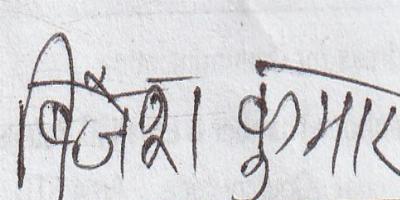 बिजेश कुमार